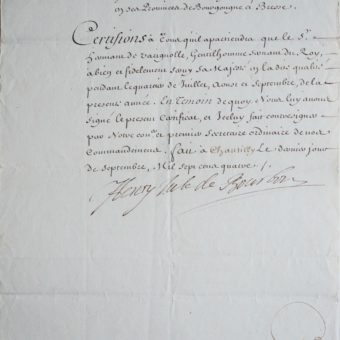 en ses Provinces de Bourgongne et Bresse
Certifions à Tous qu'il apartiendra que le Sr.
de Vaugnolle, Gentilhomme servant du Roy,
a bien et fidelement servy sa Majesté en la dite qualité
pendant le quartier de Juillet, Aoust et Septembre, de la
presente année. En Temoin de quoy Nous luy avons
signé le present Certificat, et Iceluy fait contresigner
par Notre coner. et premier Secretaire ordinaire de nos
Commandemens. fait à Chantilly Le dernier jour
de septembre, Mil sept cens quatre ./.
Henry Jule de Bourbon